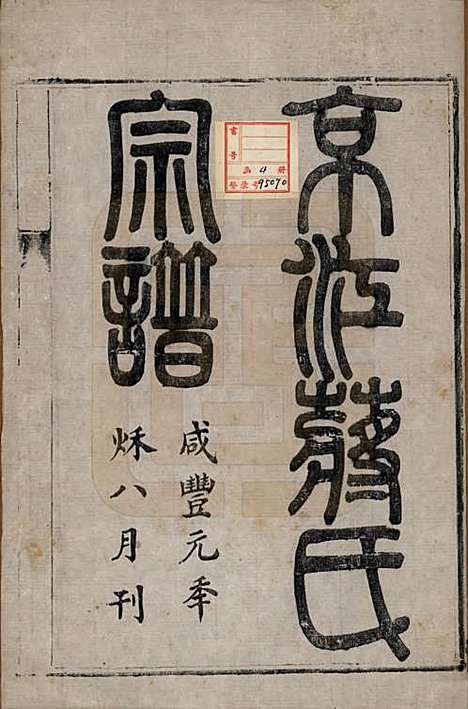 京江蔣氏
宗譜
咸豐元年
秌八月刊
書號
函 4 册
登录号 95070